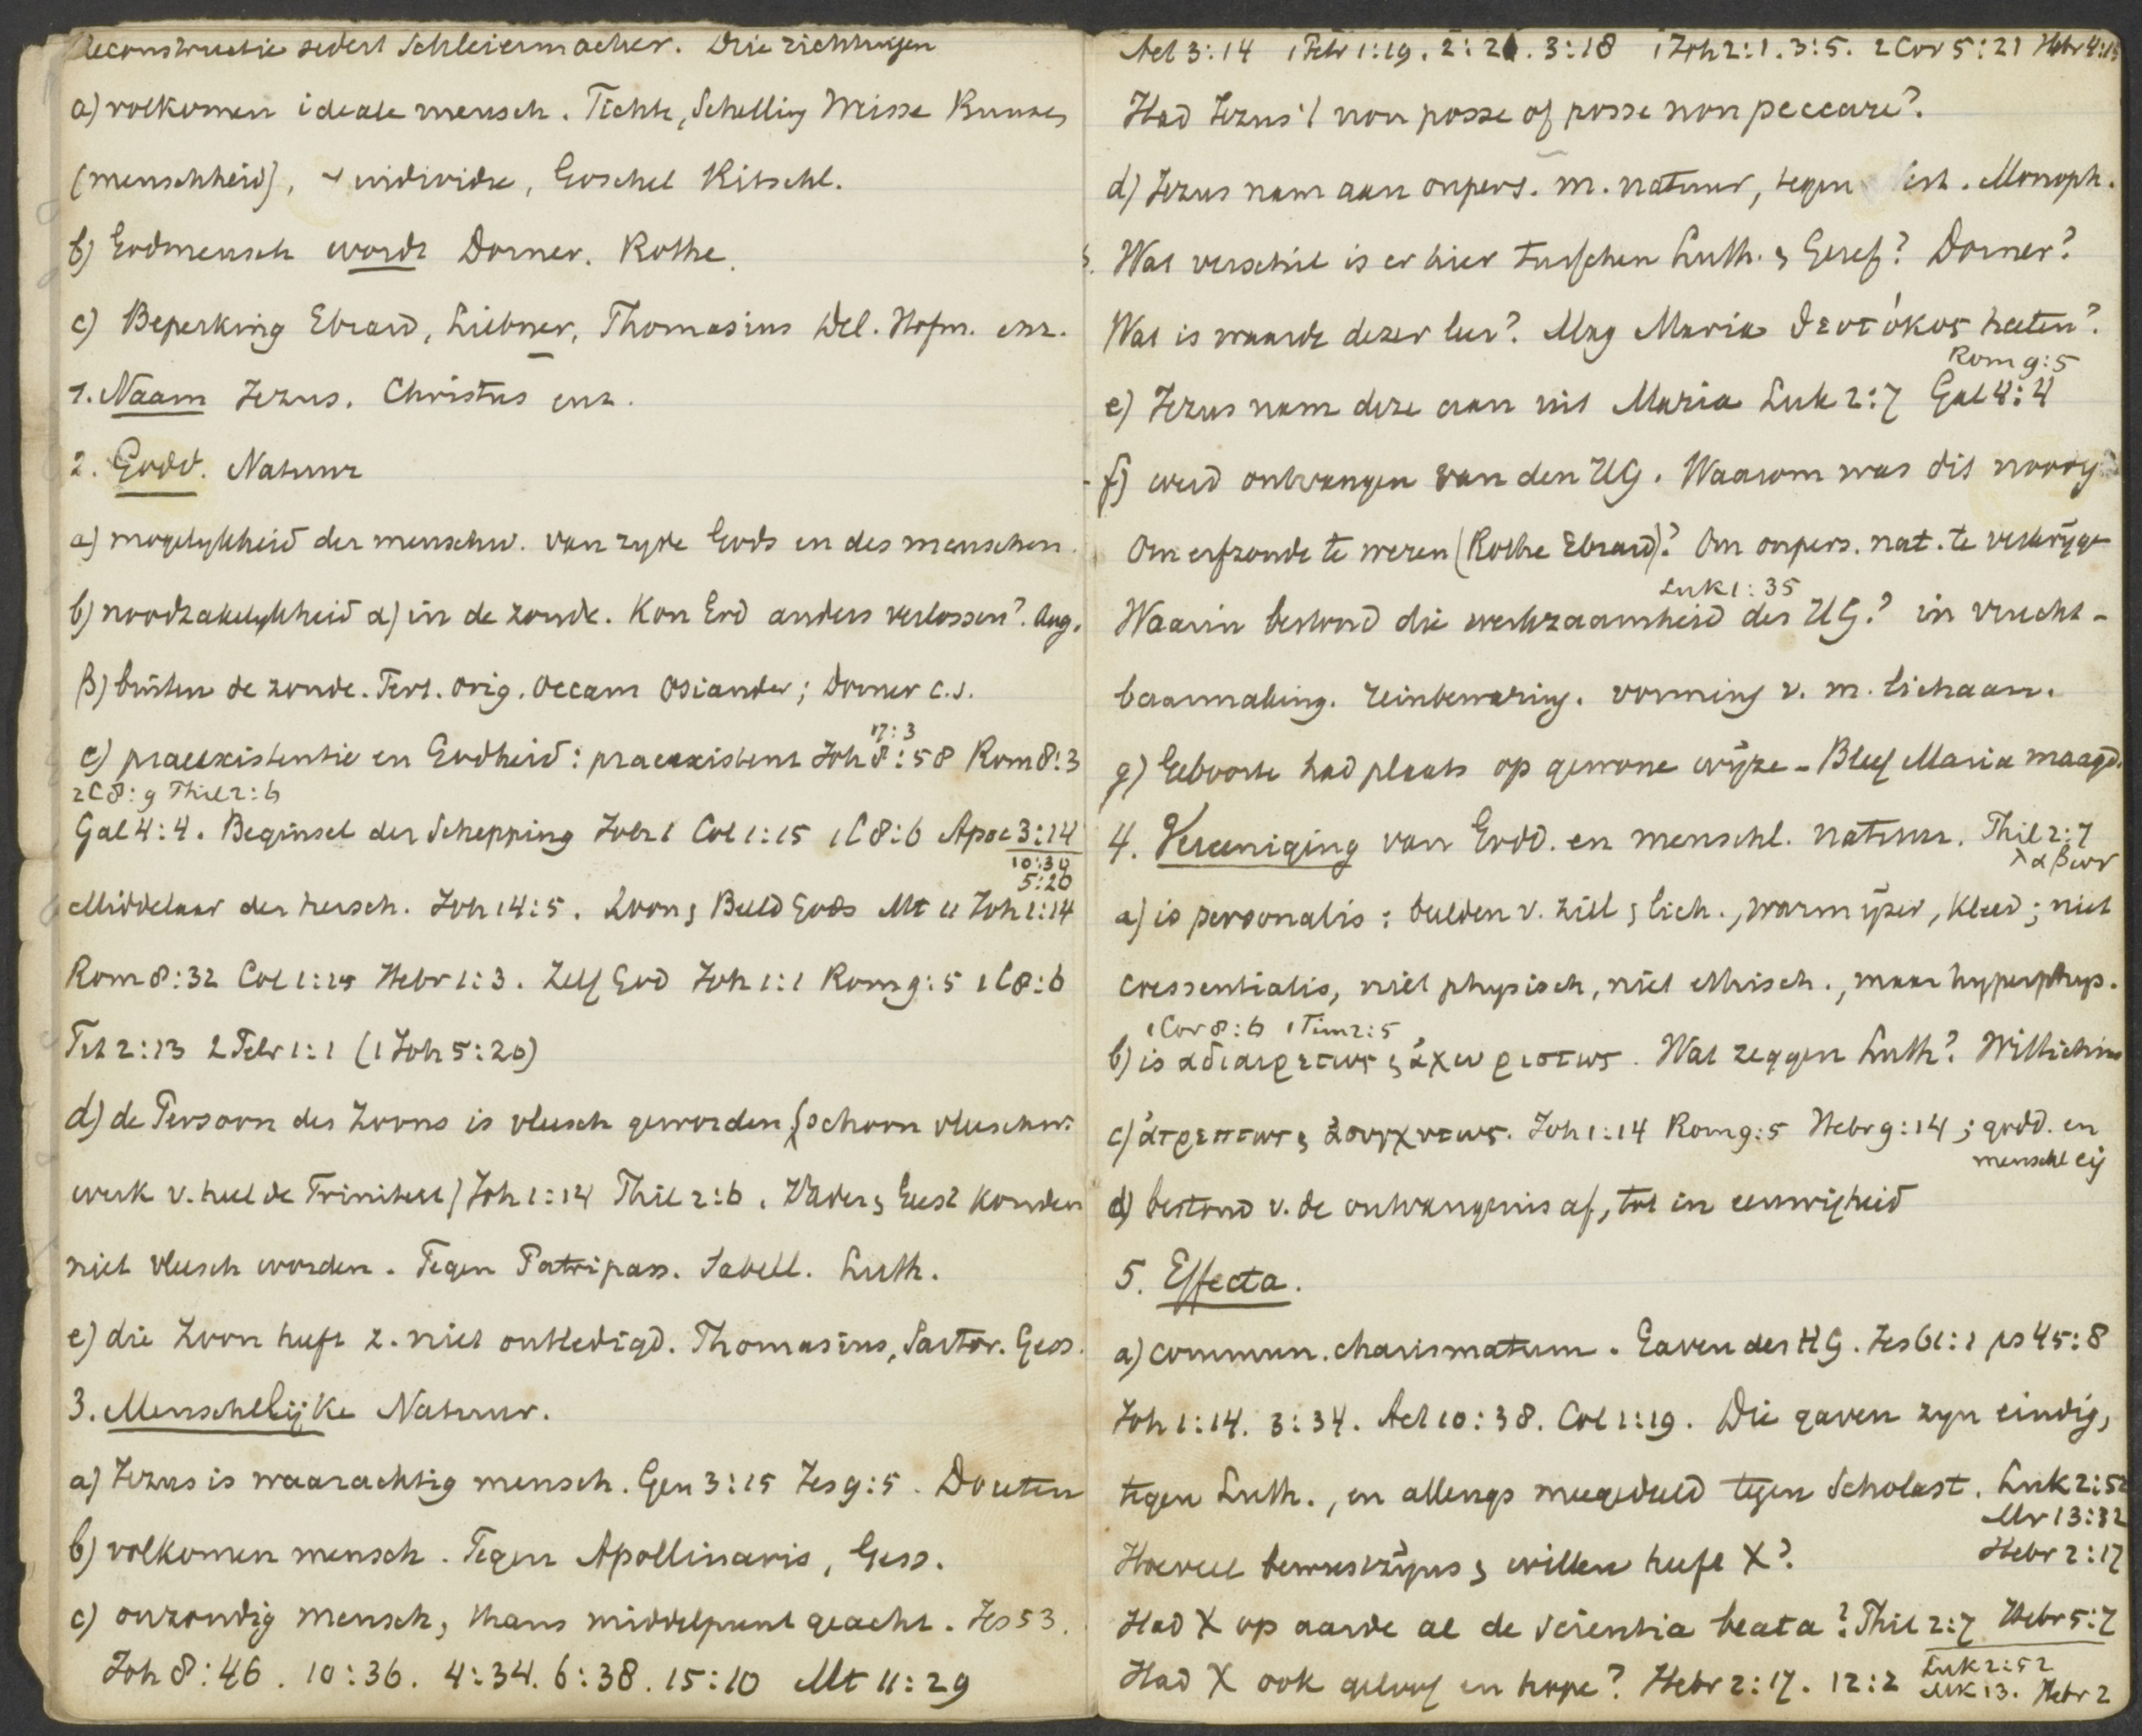 Reconstructie sedert Schleiermacher. Drie richtingen
a) volkomen ideale mensch. Fichte, Schelling Weisse Bunsen
(menschheid), individu, Goschel Ritschl.
b) Godmensch wordt Dorner. Rothe.
c) Beperking Ebrard, Liebner, Thomasius Del. Hofm. enz.
1. Naam Jezus. Christus enz.
2. Godd. Natuur
a) mogelykheid der menschw. van zyde Gods en des menschen.
b) noodzakelykheid α) in de zonde. Kon God anders verlossen? Aug.
β) buiten de zonde. Tert. Orig. Occam Osiander; Dorner c.s.
17:3
c) praeexistentie en Godheid: praeexistent Joh 8:58 Rom 8:3
2C8:9 Phil 2:6
Gal 4:4. Beginsel der Schepping Joh 1 Col 1:15 1C8:6 Apoc 3:14
10:30
5:20
Middelaar der hersch. Joh 14:5. Zoon & Beeld Gods Mt 11 Joh 1:14
Rom 8:32 Col 1:15 Hebr 1:3. Zelf God Joh 1:1 Rom 9:5 1C8:6
Tit 2:13 2 Petr 1:1 (1 Joh 5:20)
d) de Persoon des Zoons is vleesch geworden, (schoon vleeschw.
werk v. heel de Triniteit) Joh 1:14 Phil 2:6. Vader & Geest konden
niet vleesch worden. Tegen Patripass. Sabell. Luth.
e) die Zoon heeft z. niet ontledigd. Thomasius, Sartor. Gess.
3. Menschelijke Natuur.
a) Jezus is waarachtig mensch. Gen 3:15 Jes 9:5. Doceten
b) volkomen mensch. Tegen Apollinaris, Gess.
c) onzondig mensch, thans middelpunt geacht. Jes 53.
Joh 8:46. 10:36. 4:34. 6:38. 15:10 Mt 11:29
Act 3:14 1 Petr 1:19. 2:21. 3:18 1 Joh 2:1. 3:5. 2 Cor 5:21 Hebr 4:15
Had Jezus 't non posse of posse non peccare?
d) Jezus nam aan onpers. m. natuur, tegen Monoph.
Wat verschil is er hier tusschen Luth. & Geref? Dorner?
Wat is waarde dezer leer? Mag Maria θεοτόκος heeten?
Rom 9:5
e) Jezus nam deze aan uit Maria Luk 2:7 Gal 4:4
f) werd ontvangen van den HG. Waarom was dit noodig?
Om erfzonde te weren (Rothe Ebrard)? Om onpers. nat. te verkrijgen
Luk 1:35
Waarin bestond die werkzaamheid des HG.? in vrucht-
baarmaking. reinbewaring. vorming v. m. lichaam.
g) Geboorte had plaats op gewone wijze - Bleef Maria maagd.
4. Vereeniging van Godd. en menschl. natuur. Phil 2:7
λαβων
a) is personalis: beelden v. ziel & lich., warm ijzer, kleed; niet
coessentialis, niet physisch, niet ethisch., maar hyperphys.
1 Cor 8:6 1 Tim 2:5
b) is αδιαιρετως & ἀχωριστως. Wat zeggen Luth? Wittichius
c) ἀτρεπτως & ἀσυγχυτως. Joh 1:14 Rom 9:5 Hebr 9:14; godd. en
menschl eig
d) bestond v. de ontvangenis af, tot in eeuwigheid
5. Effecta.
a) commun. charismatum. Gaven des HG. Jes 61:1 ps 45:8
Joh 1:14. 3:34. Act 10:38. Col 1:19. Die gaven zyn eindig,
tegen Luth., en allengs meegedeeld tegen Scholast. Luk 2:52
Mr 13:32
Hoeveel bewustzijns & willen heeft X? Hebr 2:17
Had X op aarde al de scientia beata? Phil 2:7 Hebr 5:7
Had X ook geloof en hope? Hebr 2:17. 12:2 Luk 2:52
Mk 13. Hebr 2